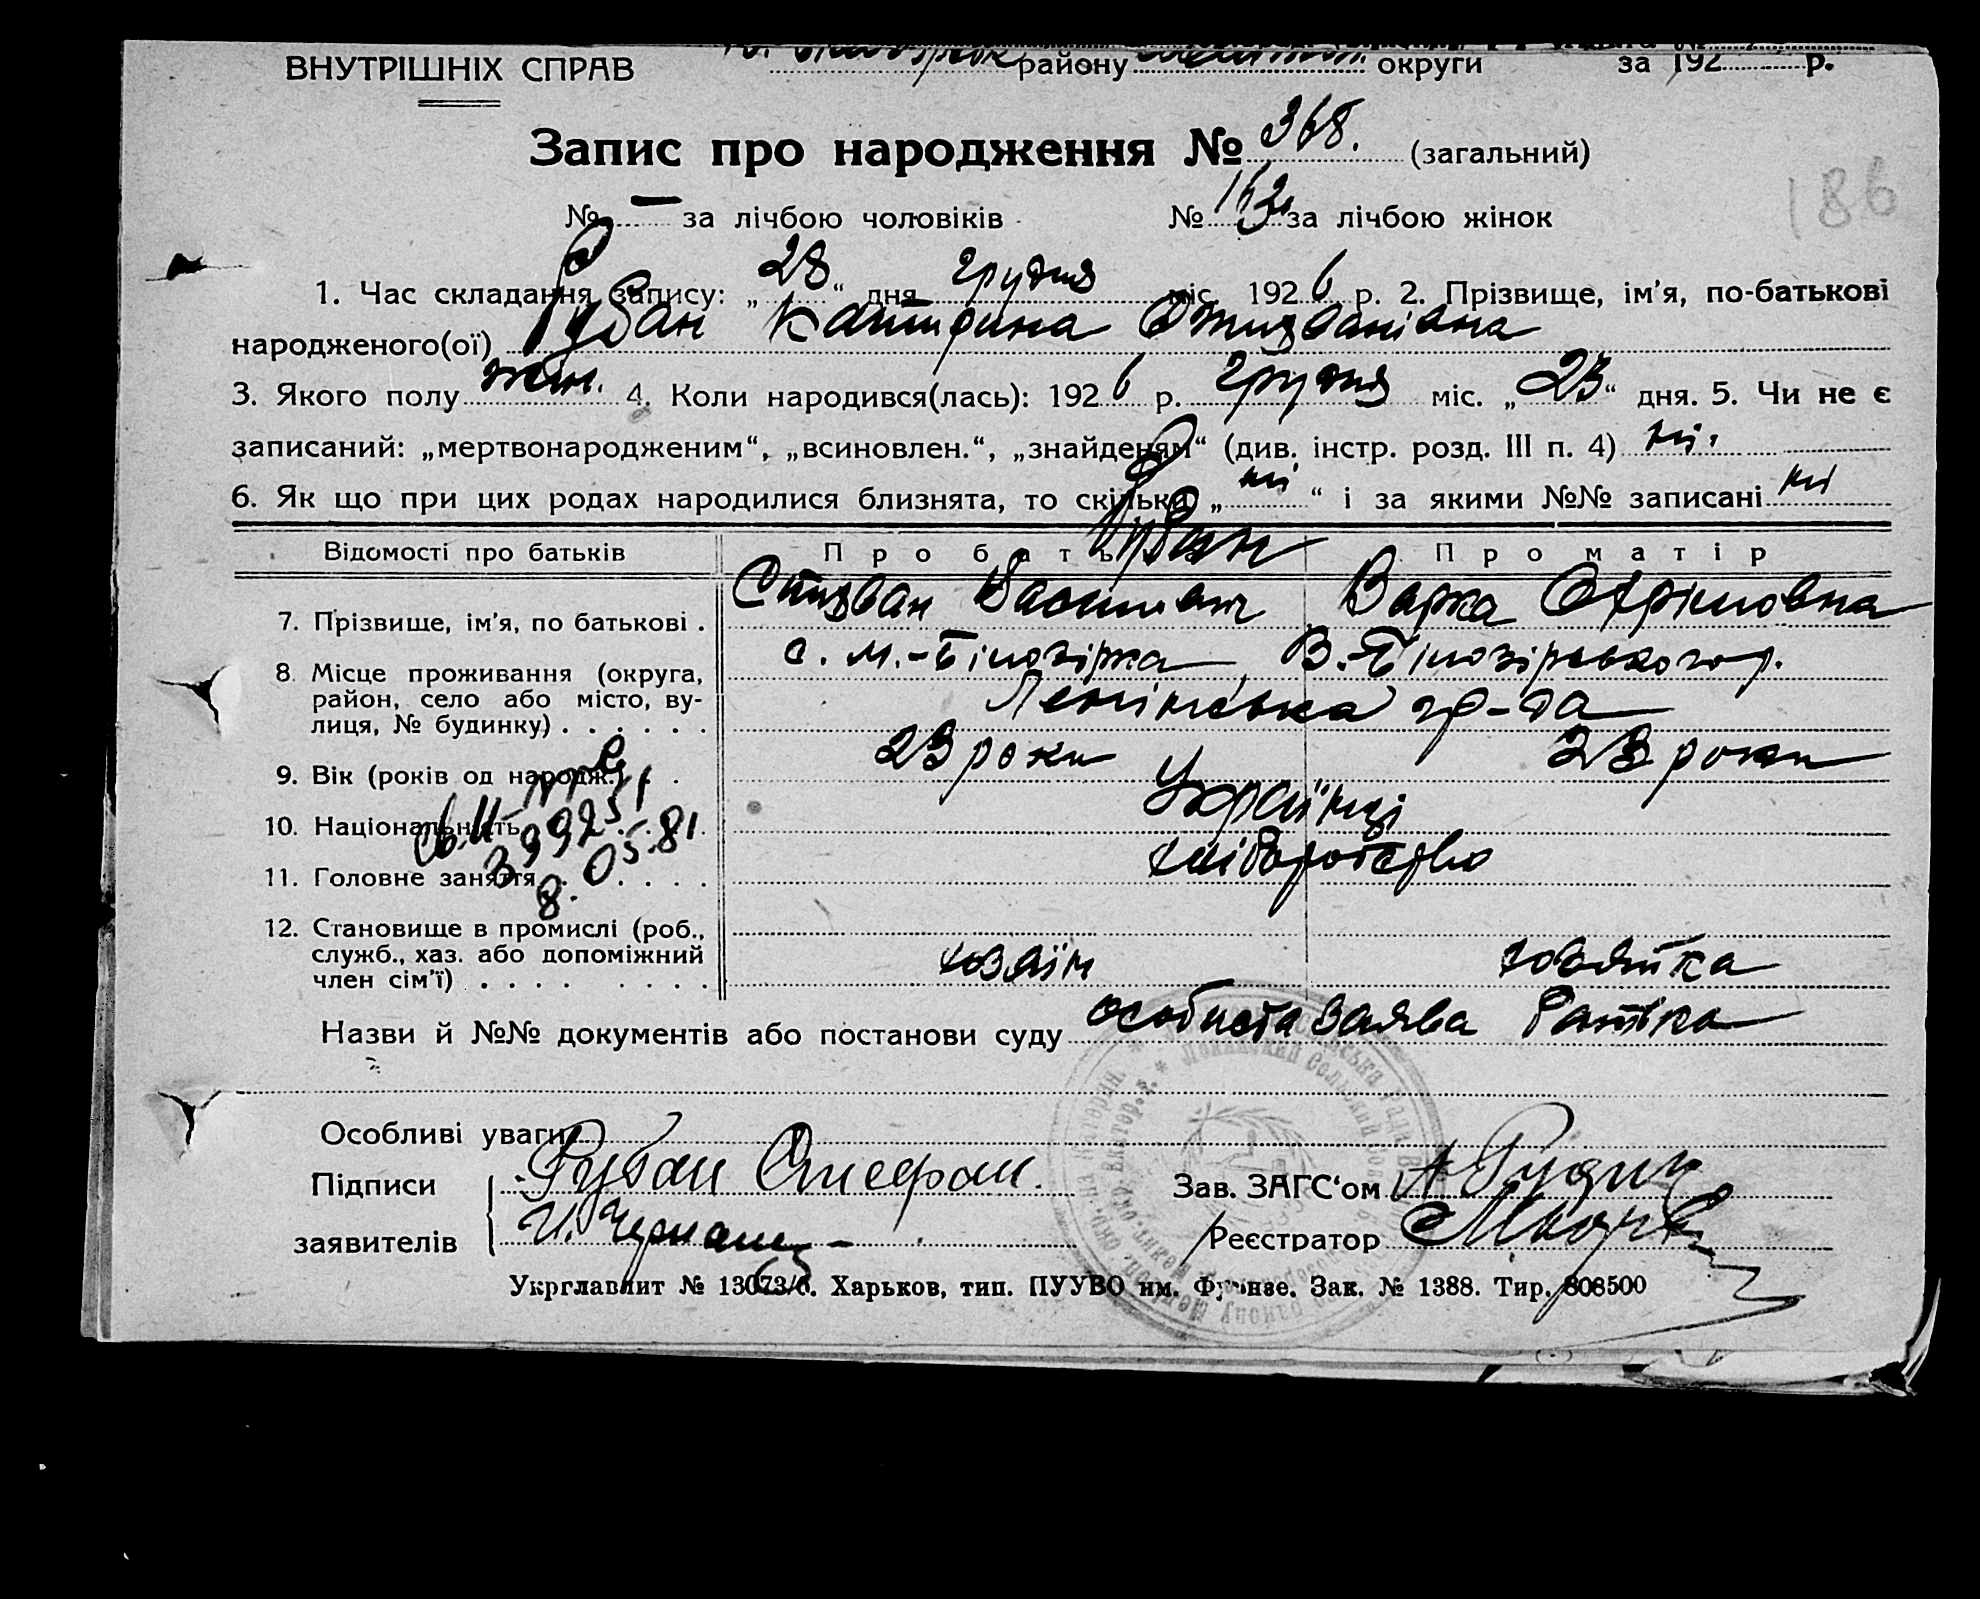 ВНУТРІШНІХ СПРАВ району округи за 192 р.
Запис про народження № 368. (загальний)
№ — за лічбою чоловіків № 162 за лічбою жінок
186
1. Час складання запису: „ 28 “ дня грудня міс. 192 6 р. 2. Прізвище, ім'я, по-батькові
народженого(ої) Рубан Катирина Стизванівна
3. Якого полу жін. 4. Коли народився(лась): 192 6 р. грудня міс. „ 23 “ дня. 5. Чи не є
записаний: „мертвонародженим“, „всиновлен.“, „знайденям“ (див. інстр. розд. III п. 4) ні.
6. Як що при цих родах народилися близнята, то скілько „ ні “ і за якими №№ записані ні
Відомості про батьків Про батька Про матір
Рубан
7. Прізвище, ім'я, по батькові . Стизван Василович Варка Охрімовна
8. Місце проживання (округа, с. М.-Білозірка В.-Білозірського р.
район, село або місто, ву-
лиця, № будинку) . . . . . . Ленінська гр-да
9. Вік (років од народж.) . . 23 роки 23 роки
10. Національність Українці
39925
11. Головне заняття . . . . . хліборобство
8. 05.81
12. Становище в промислі (роб.,
служб., хаз. або допоміжний хозяїн хозяйка
член сім'ї) . . . . . . . . .
Назви й №№ документів або постанови суду особиста заява батька
Особливі уваги
Підписи Рубан Стефан. Зав. ЗАГС'ом А Рудик
заявителів Реєстратор
Укрглавлит № 13073/б. Харьков, тип. ПУУВО им. Фрунзе. Зак. № 1388. Тир. 808500